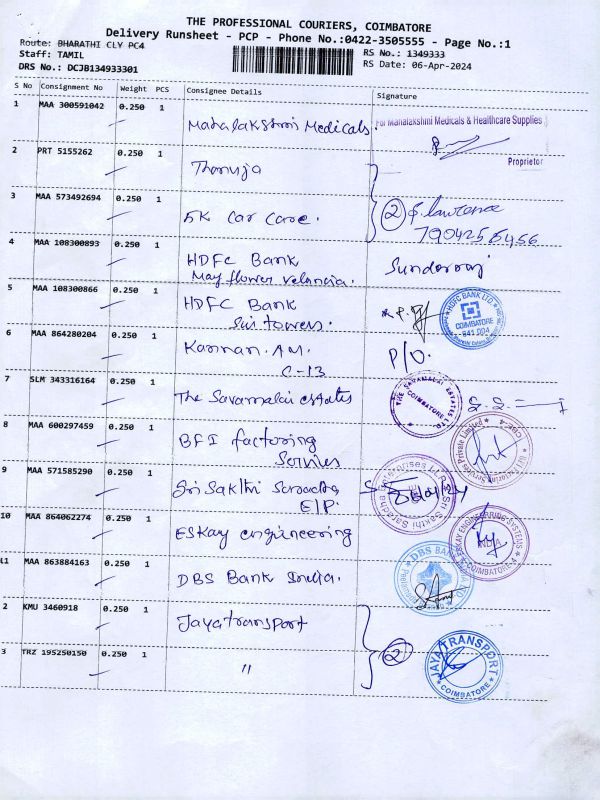 THE PROFESSIONAL COURIERS, COIMBATORE
Delivery Runsheet - PCP - Phone No.:0422-3505555 - Page No.:1
Route: BHARATHI CLY PC4
RS No.: 1349333
Staff: TAMIL
RS Date: 06-Apr-2024
DRS No.: DCJB134933301
S No Consignment No Weight PCS Consignee Details Signature
1 MAA 300591042 0.250 1 Mahalakshmi Medicals.
For Mahalakshmi Medicals & Healthcare Supplies
Proprietor
2 PRT 5155262 0.250 1 Thanuja
3 MAA 573492694 0.250 1 5K Car Care. 2 S. Lawrence
4 MAA 108300893 0.250 1 HDFC Bank Sundarraj
May flower valencia.
5 MAA 108300866 0.250 1 HDFC Bank
Sri towers.
HDFC BANK LTD. COIMBATORE 641 004
6 MAA 864280204 0.250 1 Kannan. A.M. P/O.
C-13
7 SLM 343316164 0.250 1 The Savamalai estates
THE SAVAMALAI ESTATES COIMBATORE LTD.
8 MAA 600297459 0.250 1 BFI factoring
Services
Private Limited
9 MAA 571585290 0.250 1 Sri Sakthi Saradha
E/P.
Sri Sakthi Saradha Enterprises LLP
10 MAA 864062274 0.250 1 ESKay engineering
ESKAY ENGINEERING SYSTEMS INDIA COIMBATORE-4
11 MAA 863884163 0.250 1 DBS Bank India.
DBS BANK INDIA
2 KMU 3460918 0.250 1 Jayatransport
3 TRZ 195250150 0.250 1 " 2
JAYA TRANSPORT COIMBATORE